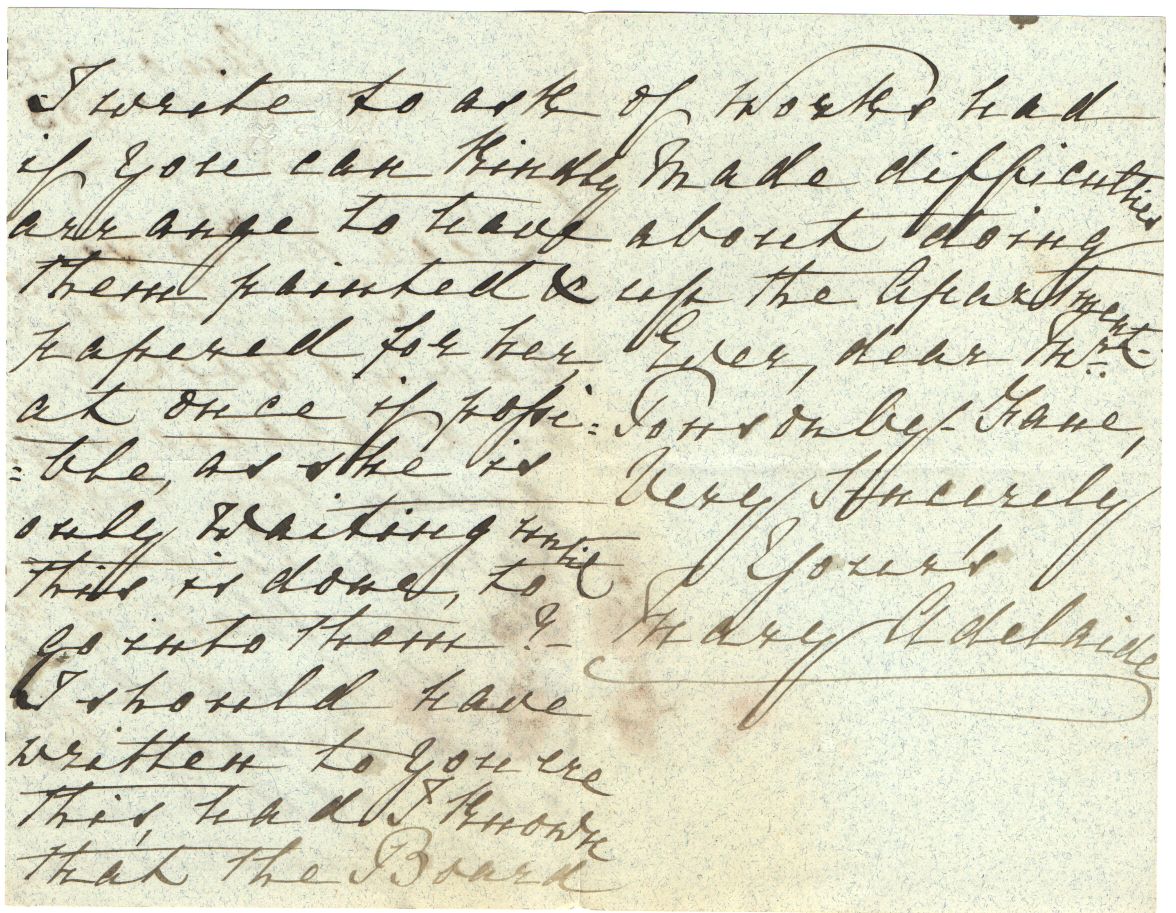 I write to ask
if you can kindly
arrange to have
them painted &
papered for her,
at once if possi=
=ble, as she is
only waiting until
this is done, to
go into them?-
I should have
written to you ere
this, had I known
that the Board
of Works had
made difficulties
about doing
up the Apartment-
Ever, dear Mr.
Ponsonby-Fane,
Very Sincerely
Your's
Mary Adelaide